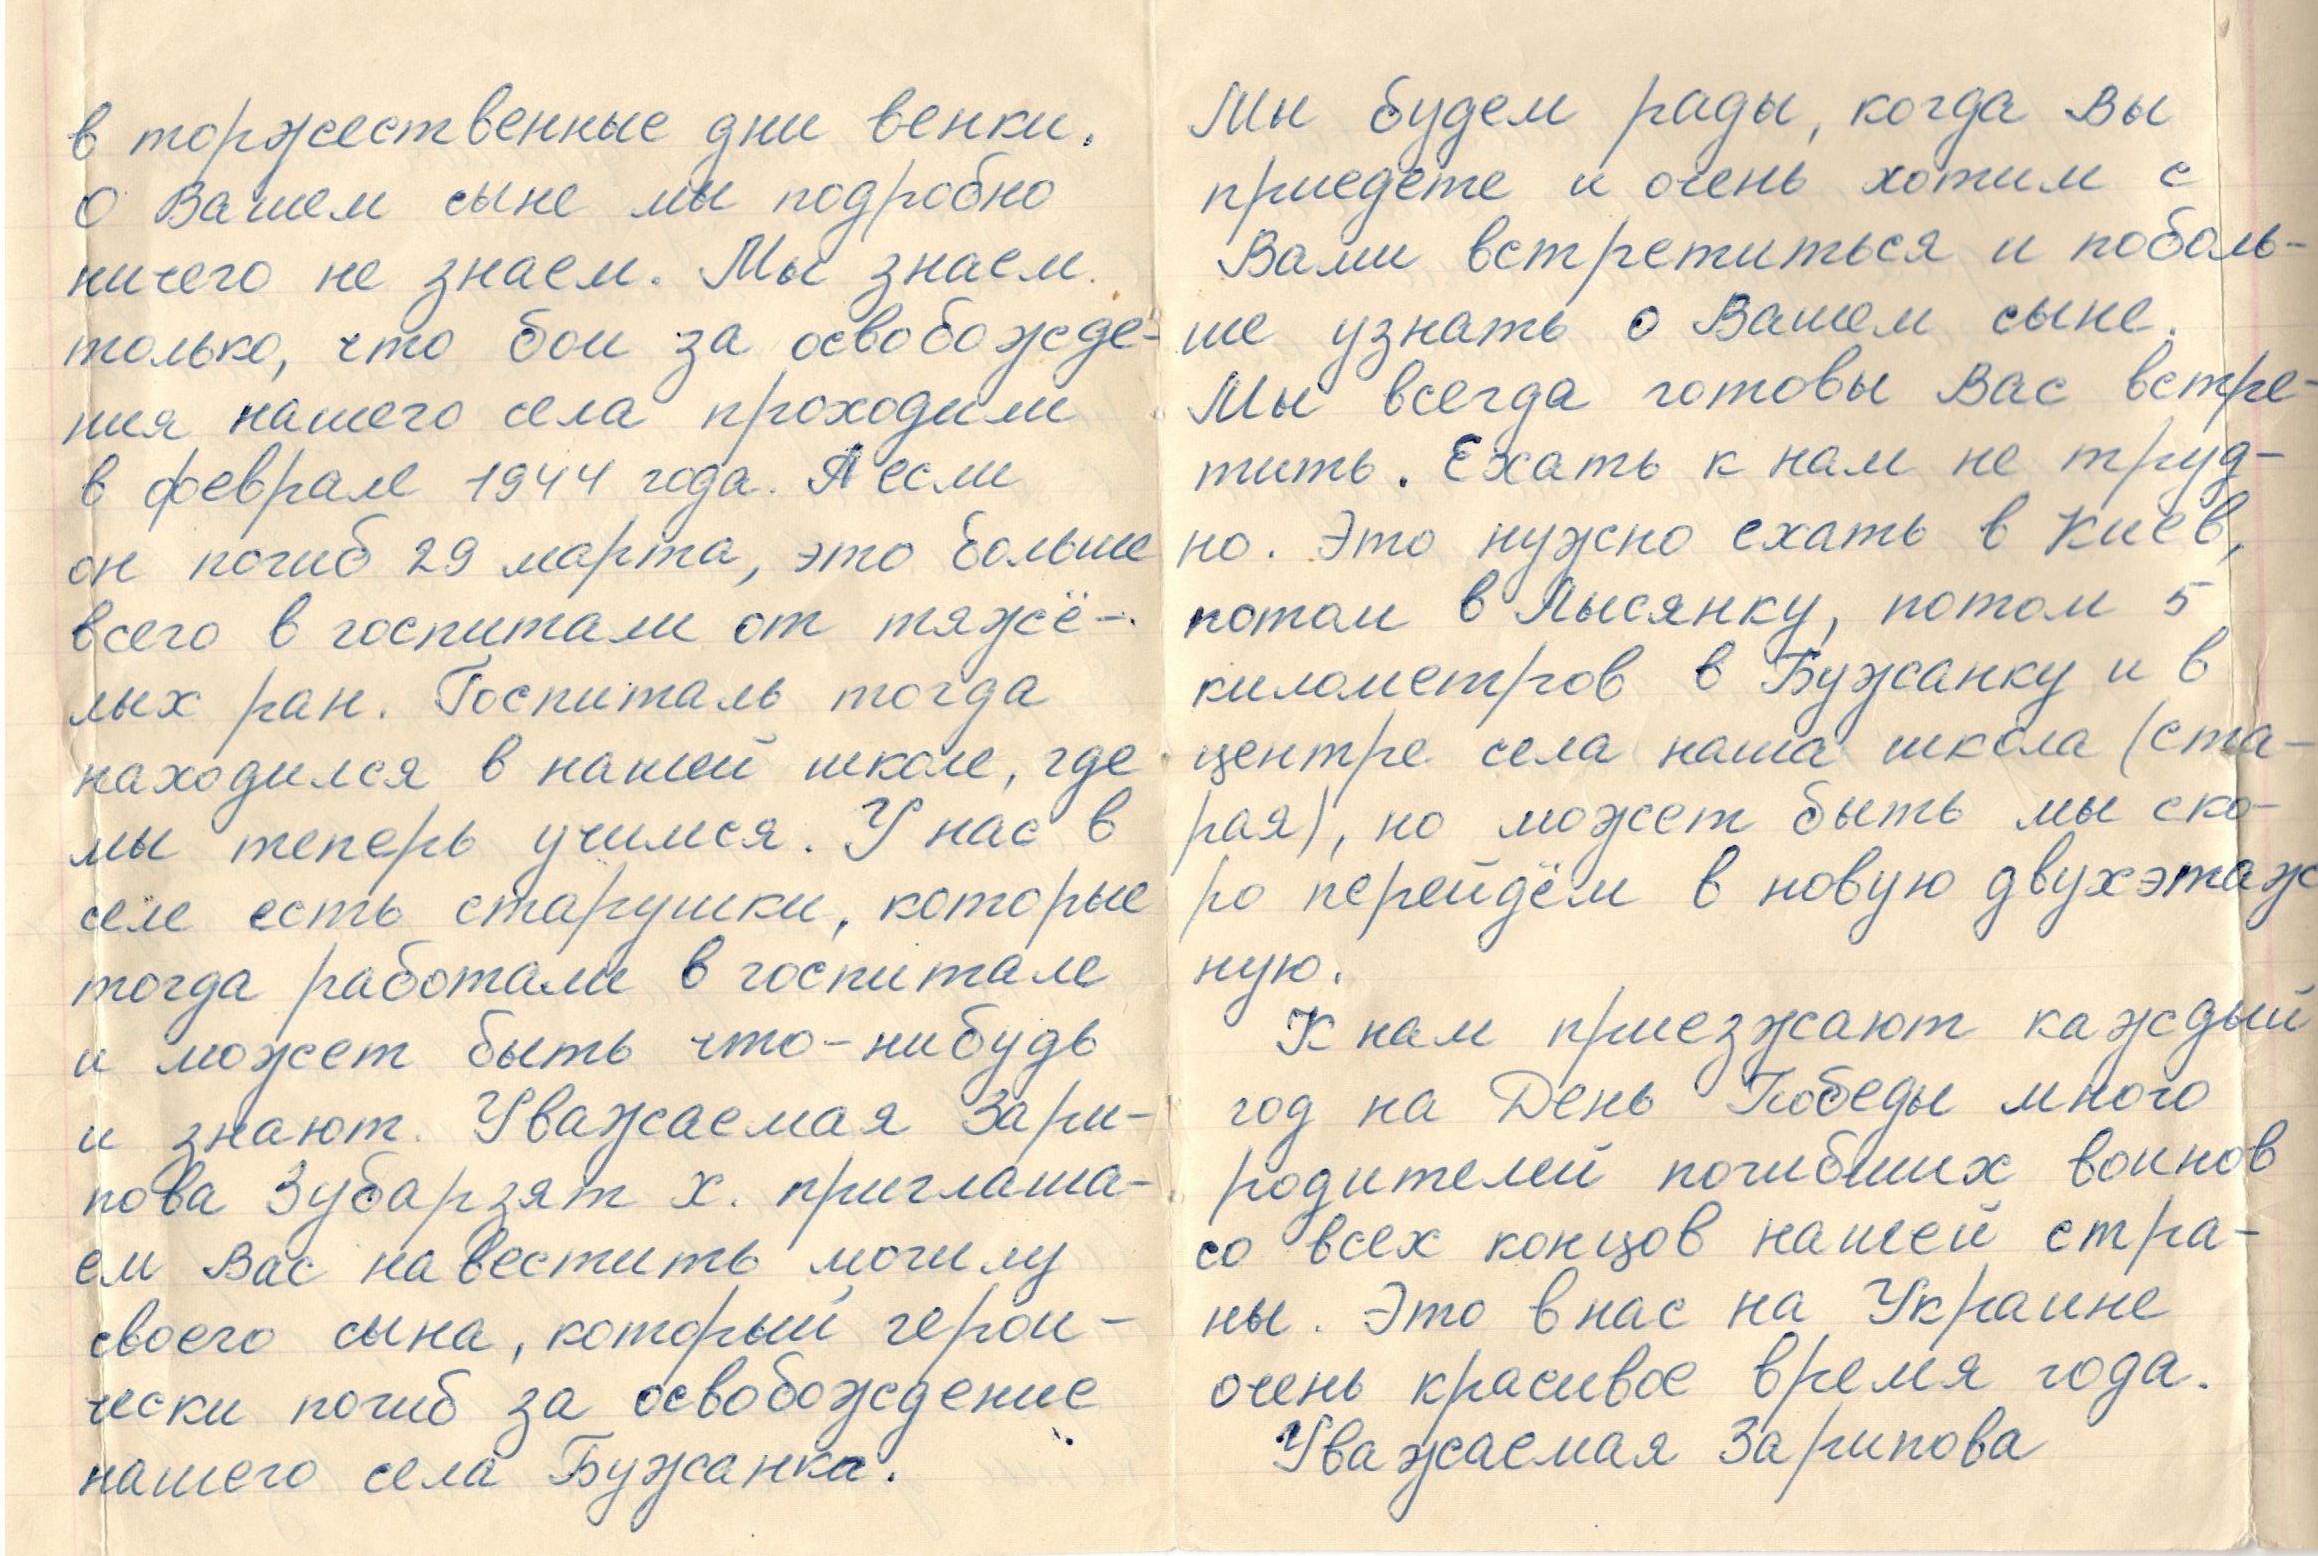 в торжественные дни венки.
О Вашем сыне мы подробно
ничего не знаем. Мы знаем
только, что бои за освобожде-
ния нашего села проходили
в феврале 1944 года. А если
он погиб 29 марта, это больше
всего в госпитали от тяжё-
лых ран. Госпиталь тогда
находился в нашей школе, где
мы теперь учимся. У нас в
селе есть старушки, которые
тогда работали в госпитале
и может быть что-нибудь
и знают. Уважаемая Зари-
пова Зубарзят Х. приглаша-
ем Вас навестить могилу
своего сына, который герои-
чески погиб за освобождение
нашего села Бужанка.
Мы будем рады, когда Вы
приедете и очень хотим с
Вами встретиться и поболь-
ше узнать о Вашем сыне.
Мы всегда готовы Вас встре-
тить. Ехать к нам не труд-
но. Это нужно ехать в Киев,
потом в Лысянку, потом 5
километров в Бужанку и в
центре села наша школа (ста-
рая), но может быть мы ско-
ро перейдём в новую двухэтаж
ную.
К нам приезжают каждый
год на День Победы много
родителей погибших воинов
со всех концов нашей стра-
ны. Это в нас на Украине
очень красивое время года.
Уважаемая Зарипова